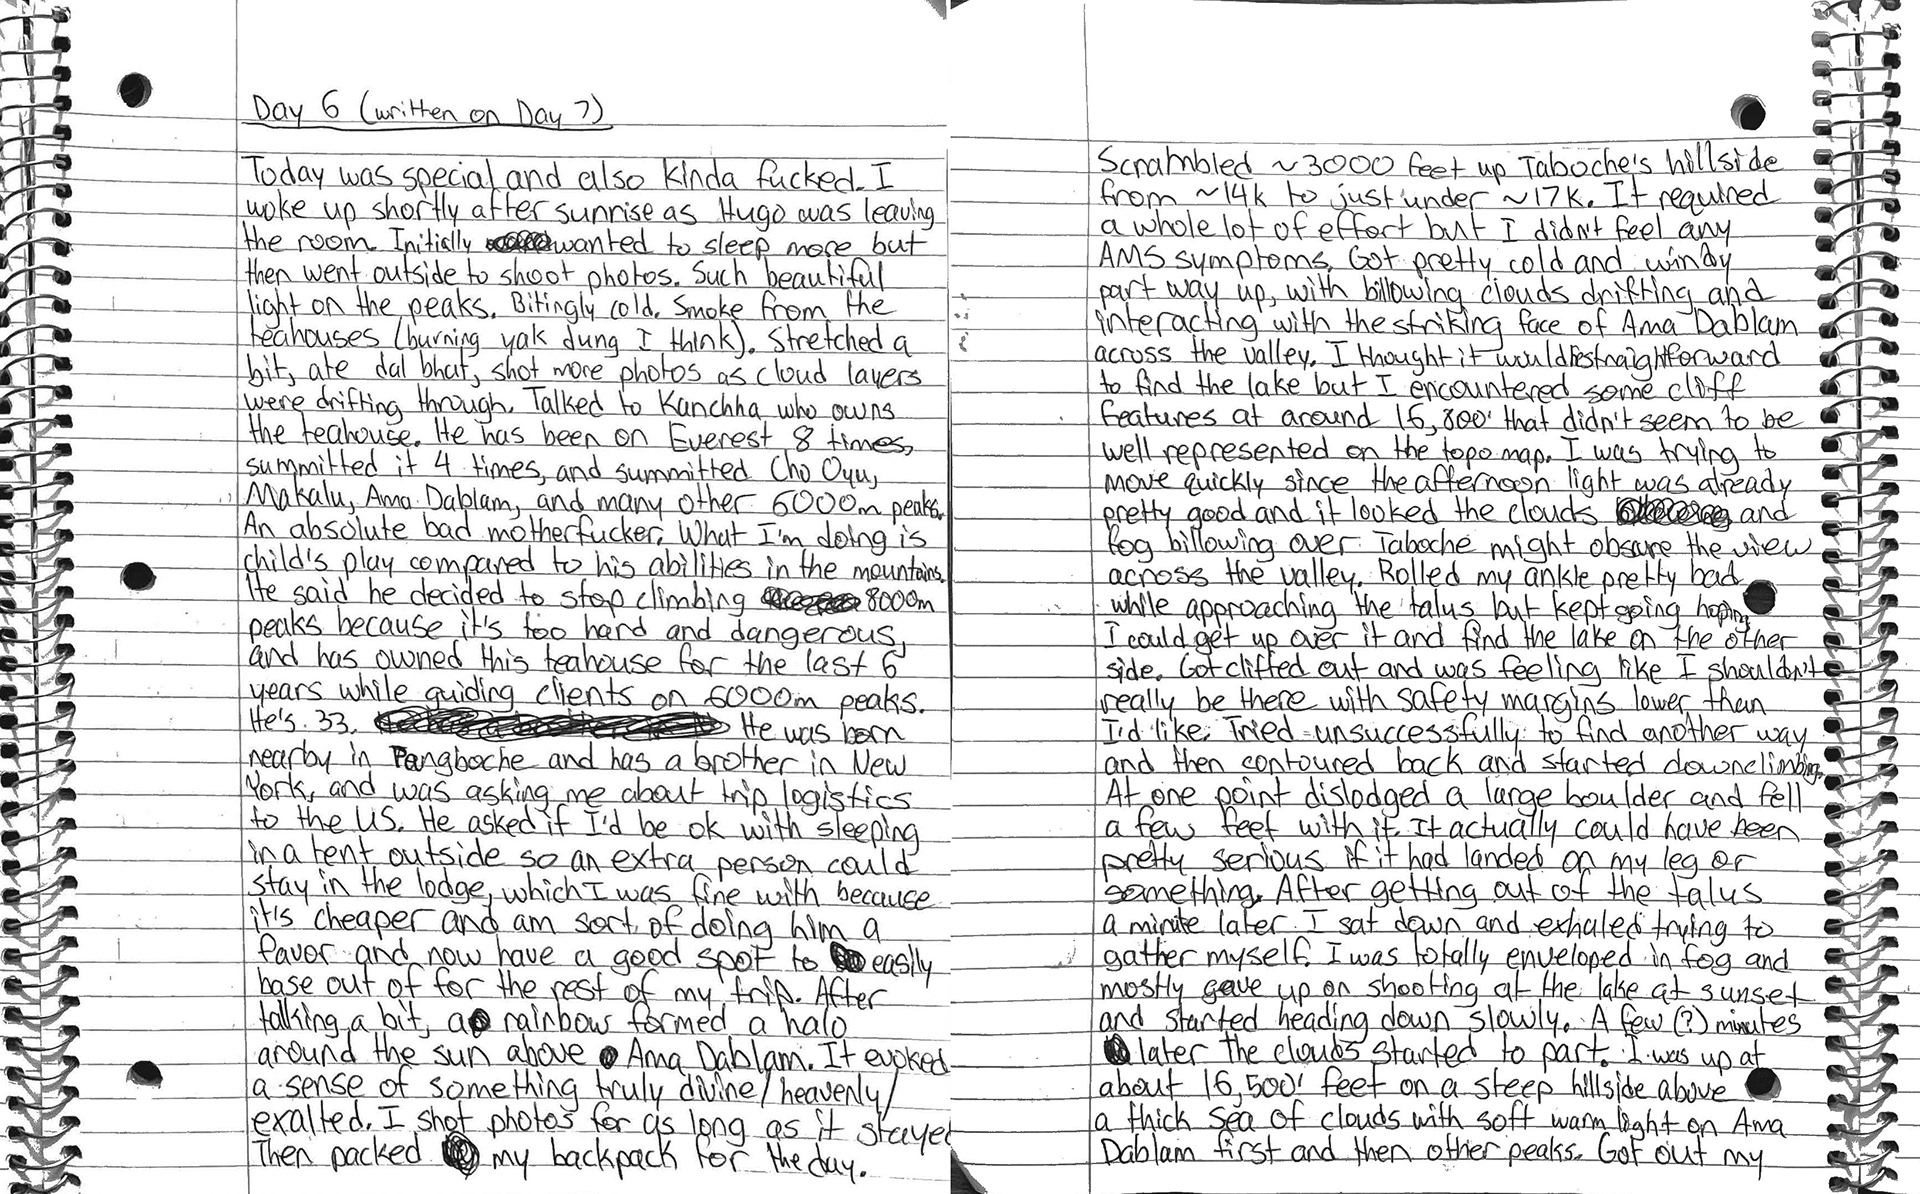 Day 6 (written on Day 7)
Today was special and also kinda fucked. I
woke up shortly after sunrise as Hugo was leaving
the room. Initially wanted to sleep more but
then went outside to shoot photos. Such beautiful
light on the peaks. Bitingly cold. Smoke from the
teahouses (burning yak dung I think). Stretched a
bit, ate dal bhat, shot more photos as cloud layers
were drifting through. Talked to Kanchha who owns
the teahouse. He has been on Everest 8 times,
summitted it 4 times, and summitted Cho Oyu,
Makalu, Ama Dablam, and many other 6000m peaks.
An absolute bad motherfucker. What I'm doing is
child's play compared to his abilities in the mountains.
He said he decided to stop climbing 8000m
peaks because it's too hard and dangerous,
and has owned this teahouse for the last 6
years while guiding clients on 6000m peaks.
He's 33. He was born
nearby in Pangboche and has a brother in New
York, and was asking me about trip logistics
to the US. He asked if I'd be ok with sleeping
in a tent outside so an extra person could
stay in the lodge, which I was fine with because
it's cheaper and am sort of doing him a
favor and now have a good spot to easily
base out of for the rest of my trip. After
talking a bit, a rainbow formed a halo
around the sun above Ama Dablam. It evoked
a sense of something truly divine/heavenly/
exalted. I shot photos for as long as it stayed
Then packed my backpack for the day.
Scrambled ~3000 feet up Taboche's hillside
from ~14k to just under ~17k. It required
a whole lot of effort but I didn't feel any
AMS symptoms. Got pretty cold and windy
part way up, with billowing clouds drifting and
interacting with the striking face of Ama Dablam
across the valley. I thought it would be straightforward
to find the lake but I encountered some cliff
features at around 16,800' that didn't seem to be
well represented on the topo map. I was trying to
move quickly since the afternoon light was already
pretty good and it looked the clouds and
fog billowing over Taboche might obscure the view
across the valley. Rolled my ankle pretty bad
while approaching the talus but kept going hoping
I could get up over it and find the lake on the other
side. Got cliffed out and was feeling like I shouldn't
really be there with safety margins lower than
I'd like. Tried unsuccessfully to find another way
and then contoured back and started downclimbing.
At one point dislodged a large boulder and fell
a few feet with it. It actually could have been
pretty serious if it had landed on my leg or
something. After getting out of the talus
a minute later I sat down and exhaled trying to
gather myself. I was totally enveloped in fog and
mostly gave up on shooting at the lake at sunset
and started heading down slowly. A few (?) minutes
later the clouds started to part. I was up at
about 16,500' feet on a steep hillside above
a thick sea of clouds with soft warm light on Ama
Dablam first and then other peaks. Got out my